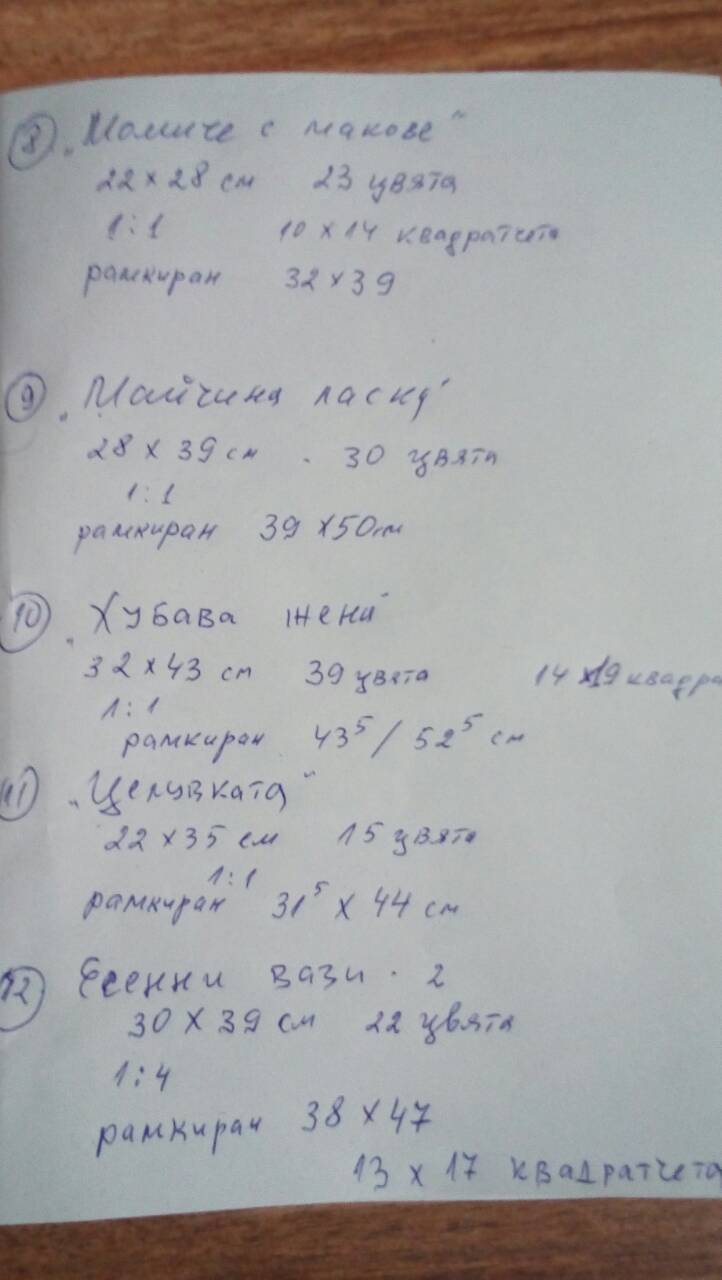 8 „Момиче с макове"
22 x 28 см 23 цвята
1:1 10 x 14 квадратчета
рамкиран 32 x 39
9 „Майчина ласка"
28 x 39 см . 30 цвята
1:1
рамкиран 39 x 50см
10 „Хубава жена"
32 x 43 см 39 цвята 14 x 19 квадра
1:1
рамкиран 43⁵ / 52⁵ см
11 „Целувката"
22 x 35 см 15 цвята
1:1
рамкиран 31⁵ x 44 см
12 Есенни вази . 2
30 x 39 см 22 цвята
1:4
рамкиран 38 x 47
13 x 17 квадратчета